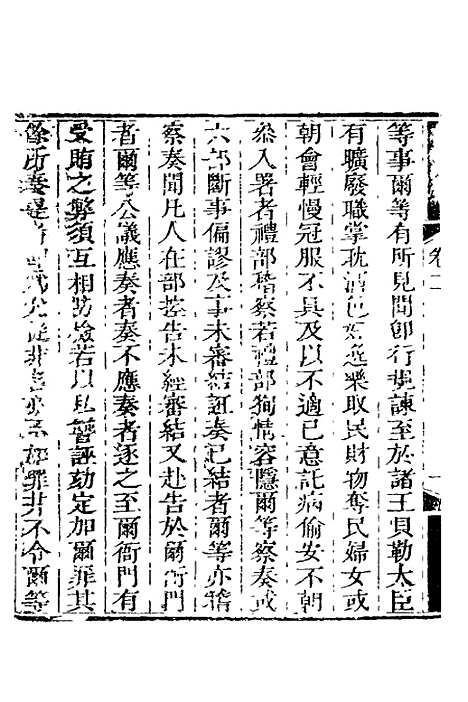 卷二
等事爾等有所見聞卽行規諫至於諸王貝勒大臣
有曠廢職掌耽酒色好逸樂取民財物奪民婦女或
朝會輕慢冠服不具及以不適已意託病偷安不朝
叅入署者禮部稽察若禮部狥情容隱爾等察奏或
六部斷事偏謬及事未審結誑奏已結者爾等亦稽
察奏聞凡人在部控告未經審結又赴告於爾衙門
者爾等公議應奏者奏不應奏者逐之至爾衙門有
受賄之弊須互相防檢若以私讐誣劾定加爾罪其
餘所奏是者卽從非者亦不加罪幷不令爾等